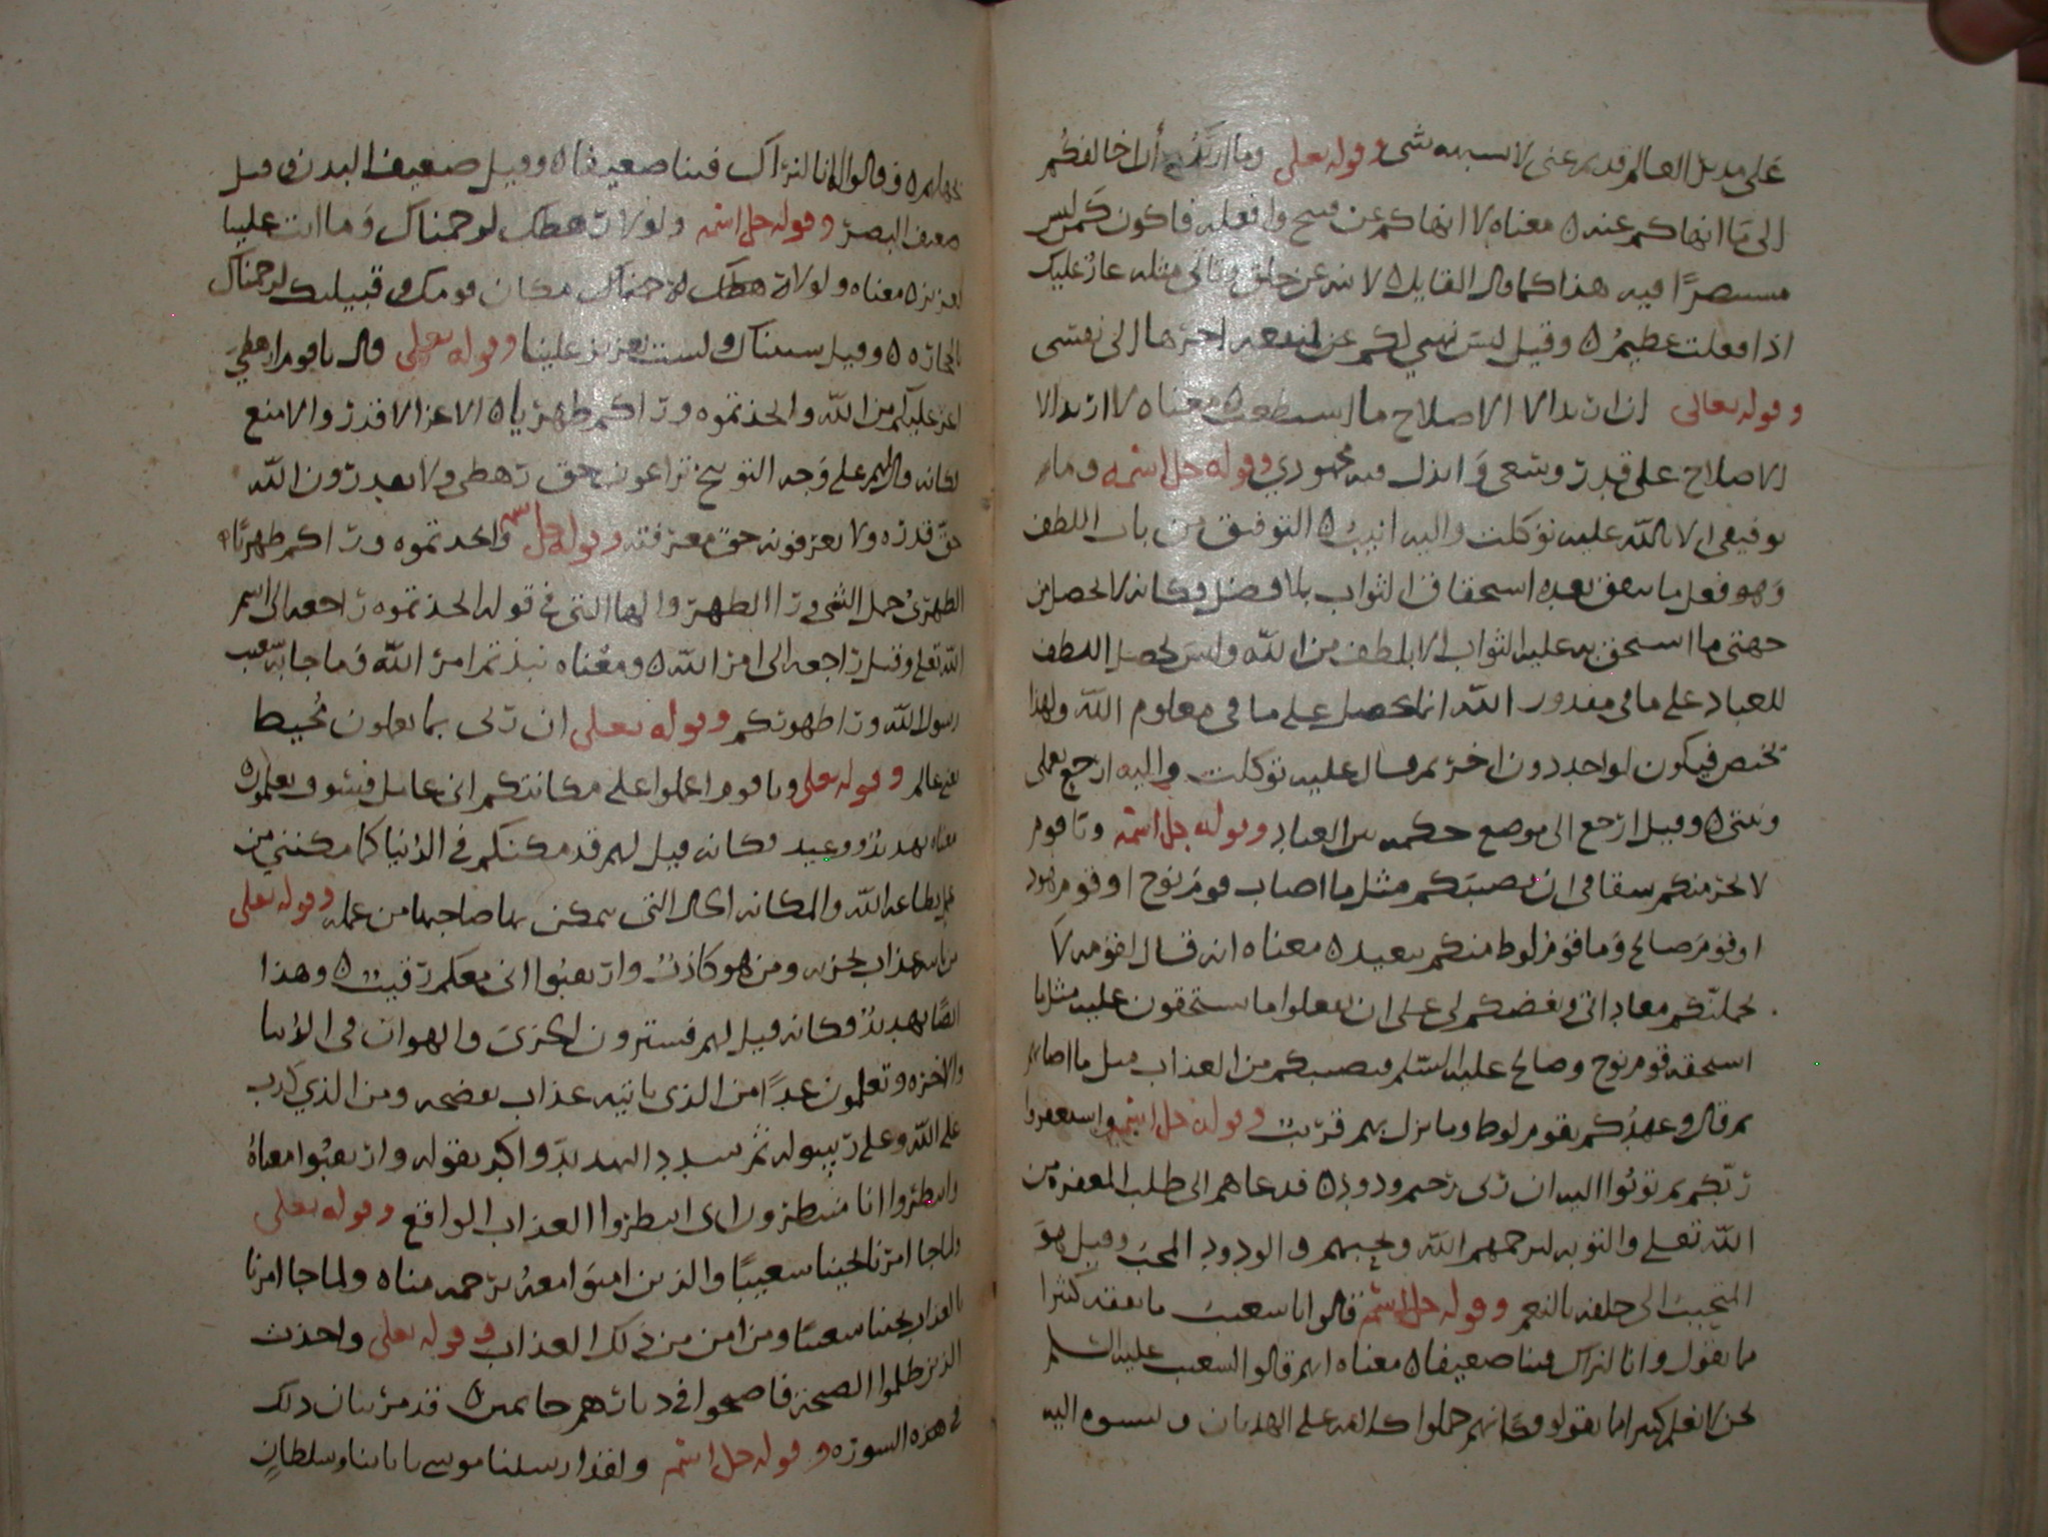 على مدبل العالم قديم غنى لا يشبهه شى وقوله تعلى وما اريد أن اخالفكم
الى ما انهاكم عنه ه معناه لا انهاكم عن قبيح وافعله فاكون كمن ليس
مستبصرًا فيه هذا كما قال القايل ه لا تنه عن خلق وتاتي مثله عار عليك
اذا فعلت عظيمُ ه وقيل ليس نهيي لكم عن لمنفعه اجرها الى نفسى
وقوله تعالى ان اريد الا الاصلاح ما استطعت ه معناه لا اريد الا
الاصلاح على قدر وسعى وابذل فيه مجهودي وقوله جل اسمه وما
توفيقى الا بالله عليه توكلت واليه انيبُ ه التوفيق من باب اللطف
وهو فعل ما يتفق بعده استحقاق الثواب بلا فضل وكانه لا يحصل من
جهتى ما استحق به عليه الثواب الا بلطف من الله وليس يحصل اللطف
للعباد على ما في مقدور الله انما يحصل على ما فى معلوم الله ولهذا
يختص فيكون لواحد دون اخر ثم قال عليه توكلت واليه ارجع بعملى
ونيتى ه وقيل ارجع الى موضع حكمه بين العباد وقوله جل اسمه ويا قوم
لا يجرمنكم شقاقى ان يصيبكم مثل ما اصاب قوم نوح او قوم هود
او قوم صالح وما قوم لوط منكم ببعيد ه معناه انه قال لقومه لا
يحملنّكم معاداتي وبغضكم لى على ان تفعلوا ما تستحقون عليه مثل ما
استحقه قوم نوح وصالح عليه السّلم فيصيبكم من العذاب مثل ما اصابهم
ثم قال وعهدكم بقوم لوط وما نزل بهم قريب وقوله جل اسمه واستغفروا
ربكم ثم توبُوا اليه ان ربى رحيم ودود ه فدعاهم الى طلب المغفره من
الله تعلى والتوبه ليرحمهم الله ويحبهم والودود المحبّ وقيل هوَ
المتحبب الى خلقه بالنعم وقوله جل اسمه قالوا يا شعيب ما نفقه كثيرا
مما تقول وانا لنراك فينا ضعيفا ه معناه انهم قالوا لشعيب عليه السلم
نحن لا نعلم كثيرا مما تقول وكانهم حملوا كلامه على الهذيان ونسبوه اليه
بجهلهم ه وقالوا انا لنراك فينا ضعيفا ه وقيل ضعيف البدن وقيل
ضعيف البصر وقوله جل اسمه ولولا رهطك لرجمناك وما انت علينا
بعزيز ه معناه ولولا رهطك لرجمناك مكان قومك وقبيلتك لرجمناك
بالحجاره ه وقيل سببناك ولست بعزيز علينا وقوله تعلى قال يا قوم ارهطي
اعز عليكم من الله واتخذتموه وراكم ظهريا ه الاعز الاقدر والامنع
فكانه قال لهم على وجه التوبيخ تراعون حق رهطى ولا تقدرون الله
حق قدره ولا تعرفونه حق معرفته وقوله جل اسمه واتخذتموه وراكم ظهريًا ه
الظهريُ جعل الشى ورا الظهر والها التى في قوله اتخذتموه راجعه الى اسم
الله تعلى وقيل راجعه الى امر الله ه ومعناه نبذتم امر الله وما جا به شعيب
رسول الله ورا ظهوركم وقوله تعلى ان ربى بما تعملون مُحيط
يعنى عالم وقوله تعلى ويا قوم اعملوا على مكانتكم انى عامل فسوف تعلمون ه
معناه تهديد ووعيد فكانه قيل لهم قد مكنكم في الدنيا كما مكننى من
عمل بطاعه الله والمكانه الحال التى يمكن بها صاحبها من عمله وقوله تعلى
من ياتيه عذاب يخزيه ومن هو كاذب وارتقبوا انى معكم رقيب ه وهذا
ايضًا تهديد وكانه قيل لهم فسترون الخزى والهوان في الدنيا
والاخره وتعلمون غدًا من الذى ياتيه عذاب يفضحه ومن الذي كذب
على الله وعلى رسوله ثم شدد التهديد واكد بقوله وارتقبُوا معناهُ
وانتظروا انا منتظرون اى انتظروا العذاب الواقع وقوله تعلى
ولما جا امرنا نجينا شعيبًا والذين امنوا معهُ برحمه منا ه ولما جا امرنا
بالعذاب نجينا شعيبًا ومن امن من ذلك العذاب وقوله تعلى واخذت
الذين ظلموا الصيحة فاصبحوا في ديارهم جاثمين ه قد مر بيان ذلك
في هذه السوره وقوله جل اسمه ولقد ارسلنا موسى باياتنا وسلطانٍ